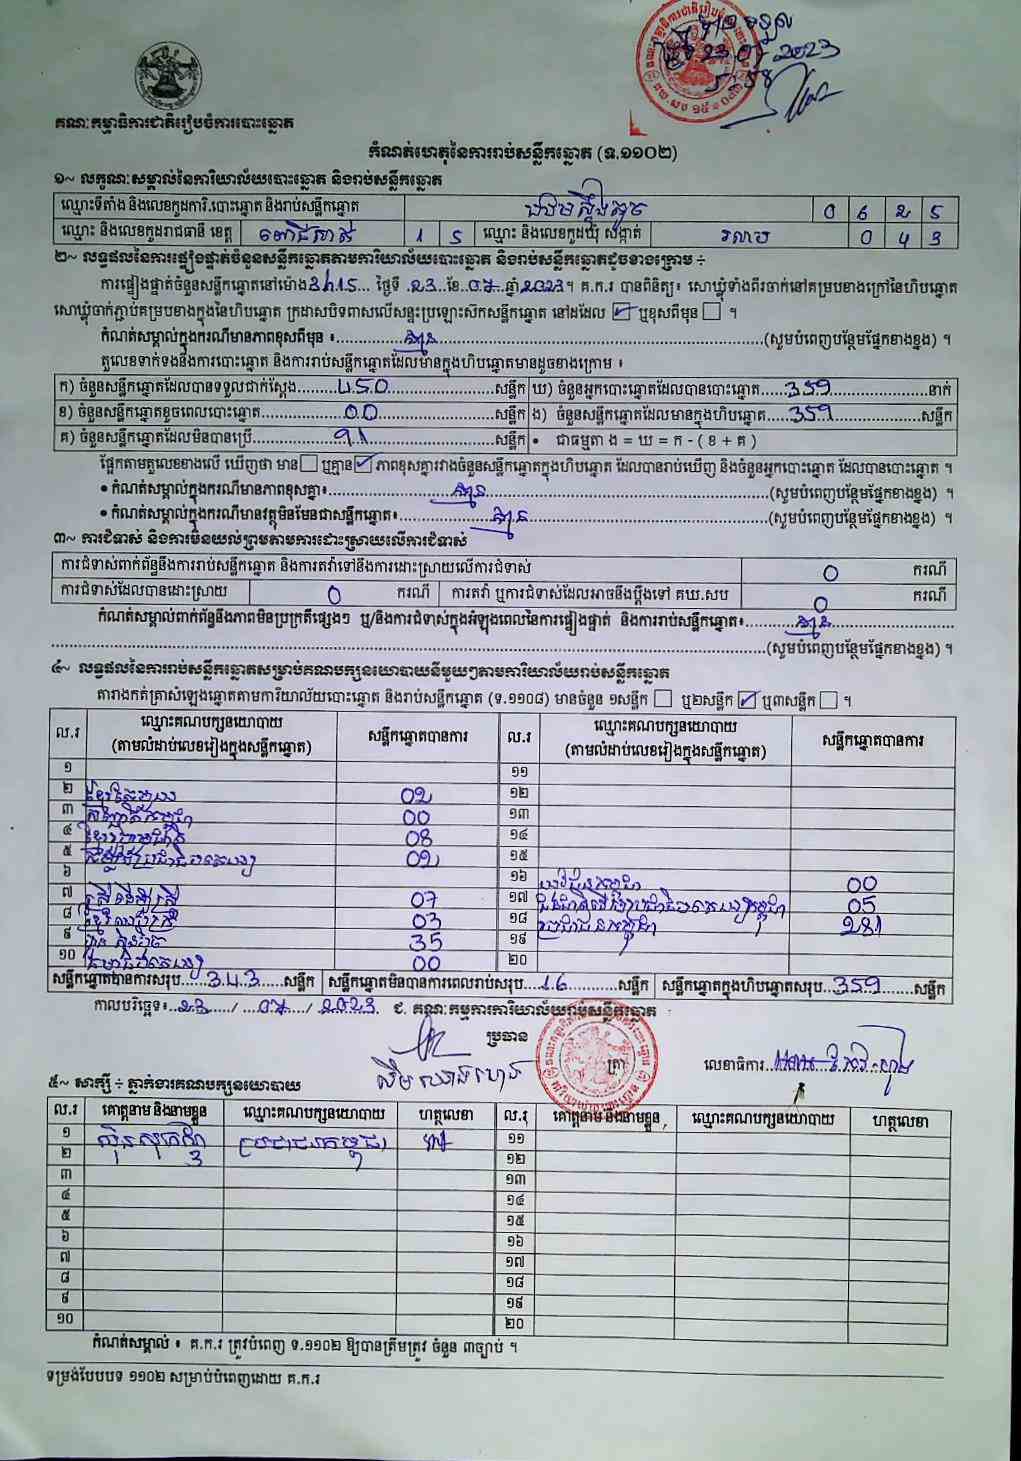 គណៈកម្មាធិការជាតិរៀបចំការបោះឆ្នោត
23 07 2023
កំណត់ហេតុនៃការរាប់សន្លឹកឆ្នោត (ទ.១១០២)
១~ លក្ខណៈសម្គាល់នៃការិយាល័យបោះឆ្នោត និងរាប់សន្លឹកឆ្នោត
ឈ្មោះទីតាំង និងលេខកូដការិ.បោះឆ្នោត និងរាប់សន្លឹកឆ្នោត 0 6 2 5
ឈ្មោះ និងលេខកូដរាជធានី ខេត្ត ពោធិ៍សាត់ 1 5 ឈ្មោះ និងលេខកូដឃុំ សង្កាត់ រលាប 0 4 3
២~ លទ្ធផលនៃការផ្ទៀងផ្ទាត់ចំនួនសន្លឹកឆ្នោតតាមការិយាល័យបោះឆ្នោត និងរាប់សន្លឹកឆ្នោតដូចខាងក្រោម ÷
ការផ្ទៀងផ្ទាត់ចំនួនសន្លឹកឆ្នោតនៅម៉ោង 3h15 ថ្ងៃទី 23 ខែ 07 ឆ្នាំ 2023។ គ.ក.រ បានពិនិត្យ៖ សោឃ្លុំទាំងពីរចាក់នៅគម្របខាងក្រៅនៃហិបឆ្នោត
សោឃ្លុំចាក់ភ្ជាប់គម្របខាងក្នុងនៃហិបឆ្នោត ក្រដាសបិទពាសលើសន្ទះប្រឡោះស៊កសន្លឹកឆ្នោត នៅដដែល ☑ ឬខុសពីមុន ☐ ។
កំណត់សម្គាល់ក្នុងករណីមានភាពខុសពីមុន ៖ គ្មាន (សូមបំពេញបន្ថែមផ្នែកខាងខ្នង) ។
តួលេខទាក់ទងនឹងការបោះឆ្នោត និងការរាប់សន្លឹកឆ្នោតដែលមានក្នុងហិបឆ្នោតមានដូចខាងក្រោម ៖
ក) ចំនួនសន្លឹកឆ្នោតដែលបានទទួលជាក់ស្តែង 450 សន្លឹក ឃ) ចំនួនអ្នកបោះឆ្នោតដែលបានបោះឆ្នោត 359 នាក់
ខ) ចំនួនសន្លឹកឆ្នោតខូចពេលបោះឆ្នោត 00 សន្លឹក ង) ចំនួនសន្លឹកឆ្នោតដែលមានក្នុងហិបឆ្នោត 359 សន្លឹក
គ) ចំនួនសន្លឹកឆ្នោតដែលមិនបានប្រើ 91 សន្លឹក • ជាធម្មតា ង = ឃ = ក - ( ខ + គ )
ផ្អែកតាមតួលេខខាងលើ ឃើញថា មាន ☐ ឬគ្មាន ☑ ភាពខុសគ្នារវាងចំនួនសន្លឹកឆ្នោតក្នុងហិបឆ្នោត ដែលបានរាប់ឃើញ និងចំនួនអ្នកបោះឆ្នោត ដែលបានបោះឆ្នោត ។
• កំណត់សម្គាល់ក្នុងករណីមានភាពខុសគ្នា៖ គ្មាន (សូមបំពេញបន្ថែមផ្នែកខាងខ្នង) ។
• កំណត់សម្គាល់ក្នុងករណីមានវត្ថុមិនមែនជាសន្លឹកឆ្នោត៖ គ្មាន (សូមបំពេញបន្ថែមផ្នែកខាងខ្នង) ។
៣~ ការជំទាស់ និងការមិនយល់ព្រមតាមការដោះស្រាយលើការជំទាស់
ការជំទាស់ពាក់ព័ន្ធនឹងការរាប់សន្លឹកឆ្នោត និងការតវ៉ាទៅនឹងការដោះស្រាយលើការជំទាស់ 0 ករណី
ការជំទាស់ដែលបានដោះស្រាយ 0 ករណី ការតវ៉ា ឬការជំទាស់ដែលអាចនឹងប្តឹងទៅ គឃ.សប 0 ករណី
កំណត់សម្គាល់ពាក់ព័ន្ធនឹងភាពមិនប្រក្រតីផ្សេងៗ ឬ/និងការជំទាស់ក្នុងអំឡុងពេលនៃការផ្ទៀងផ្ទាត់ និងការរាប់សន្លឹកឆ្នោត៖ គ្មាន
(សូមបំពេញបន្ថែមផ្នែកខាងខ្នង) ។
៤~ លទ្ធផលនៃការរាប់សន្លឹកឆ្នោតសម្រាប់គណបក្សនយោបាយនីមួយៗតាមការិយាល័យរាប់សន្លឹកឆ្នោត
តារាងកត់ត្រាសំឡេងឆ្នោតតាមការិយាល័យបោះឆ្នោត និងរាប់សន្លឹកឆ្នោត (ទ.១១០៨) មានចំនួន ១សន្លឹក ☐ ឬ២សន្លឹក ☑ ឬ៣សន្លឹក ☐ ។
ល.រ ឈ្មោះគណបក្សនយោបាយ (តាមលំដាប់លេខរៀងក្នុងសន្លឹកឆ្នោត) សន្លឹកឆ្នោតបានការ ល.រ ឈ្មោះគណបក្សនយោបាយ (តាមលំដាប់លេខរៀងក្នុងសន្លឹកឆ្នោត) សន្លឹកឆ្នោតបានការ
១ ១១
២ 02 ១២
៣ 00 ១៣
៤ 08 ១៤
៥ 02 ១៥
៦ ១៦ 00
៧ 07 ១៧ 05
៨ 03 ១៨ ប្រជាជនកម្ពុជា 281
៩ 35 ១៩
១០ 00 ២០
សន្លឹកឆ្នោតបានការសរុប 343 សន្លឹក សន្លឹកឆ្នោតមិនបានការពេលរាប់សរុប 16 សន្លឹក សន្លឹកឆ្នោតក្នុងហិបឆ្នោតសរុប 359 សន្លឹក
កាលបរិច្ឆេទ៖ 23 / 07 / 2023. ជ. គណៈកម្មការការិយាល័យរាប់សន្លឹកឆ្នោត
ប្រធាន
ត្រា លេខាធិការ
៥~ សាក្សី ÷ ភ្នាក់ងារគណបក្សនយោបាយ
ល.រ គោត្តនាម និងនាមខ្លួន ឈ្មោះគណបក្សនយោបាយ ហត្ថលេខា ល.រ គោត្តនាម និងនាមខ្លួន ឈ្មោះគណបក្សនយោបាយ ហត្ថលេខា
១ ប្រជាជនកម្ពុជា ១១
២ ១២
៣ ១៣
៤ ១៤
៥ ១៥
៦ ១៦
៧ ១៧
៨ ១៨
៩ ១៩
១០ ២០
កំណត់សម្គាល់ ៖ គ.ក.រ ត្រូវបំពេញ ទ.១១០២ ឱ្យបានត្រឹមត្រូវ ចំនួន ៣ច្បាប់ ។
ទម្រង់បែបបទ ១១០២ សម្រាប់បំពេញដោយ គ.ក.រ